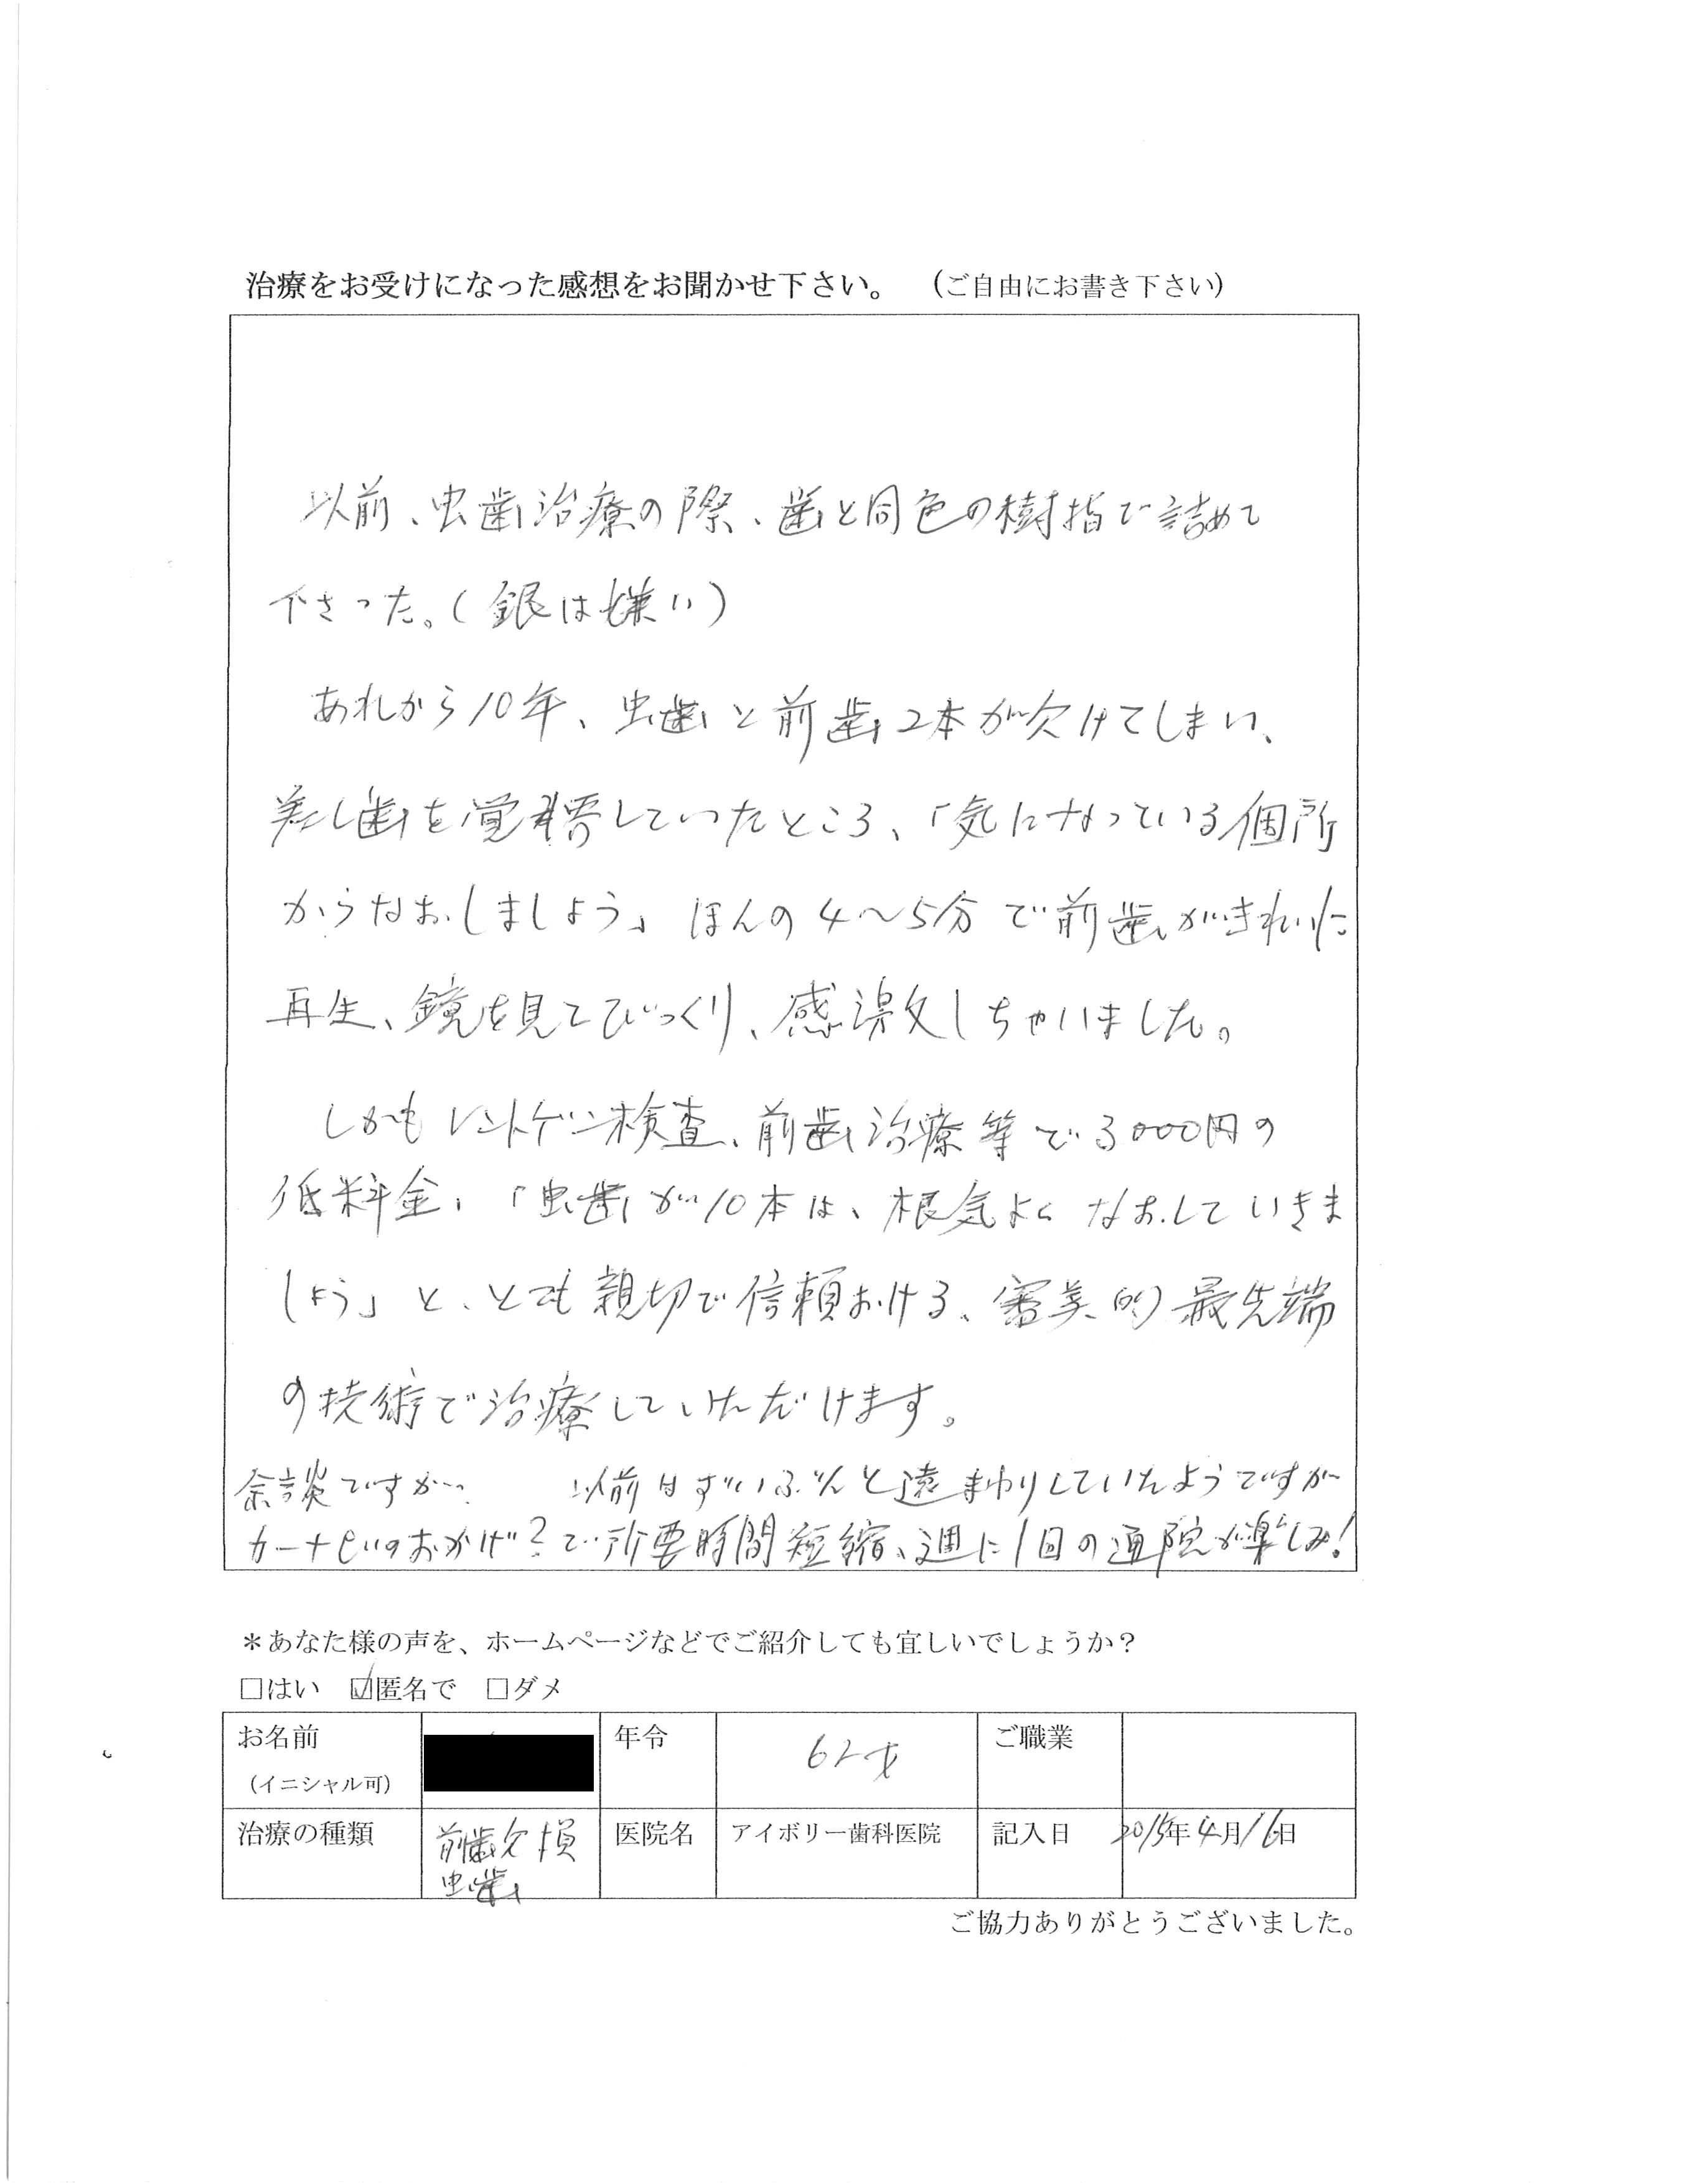 治療をお受けになった感想をお聞かせ下さい。 (ご自由にお書き下さい)
以前、虫歯治療の際、歯と同色の樹指で詰めて
下さった。(銀は嫌い)
あれから10年、虫歯と前歯2本が欠けてしまい、
差し歯を覚悟していったところ、「気になっている個所
からなおしましょう」ほんの4～5分で前歯がきれいに
再生、鏡を見てびっくり、感激しちゃいました。
しかもレントゲン検査、前歯治療等で3000円の
低料金、「虫歯が10本は、根気よくなおしていきま
しょう」と、とても親切で信頼おける、審美的最先端
の技術で治療していただけます。
余談ですが… 以前はずいぶんと遠まわりしていたようですが
カーナビのおかげ?で所要時間短縮、週に1回の通院が楽しみ!
＊あなた様の声を、ホームページなどでご紹介しても宜しいでしょうか？
□はい ☑匿名で □ダメ
お名前 年令 62才 ご職業
(イニシャル可)
治療の種類 前歯欠損 医院名 アイボリー歯科医院 記入日 2015年4月16日
虫歯
ご協力ありがとうございました。